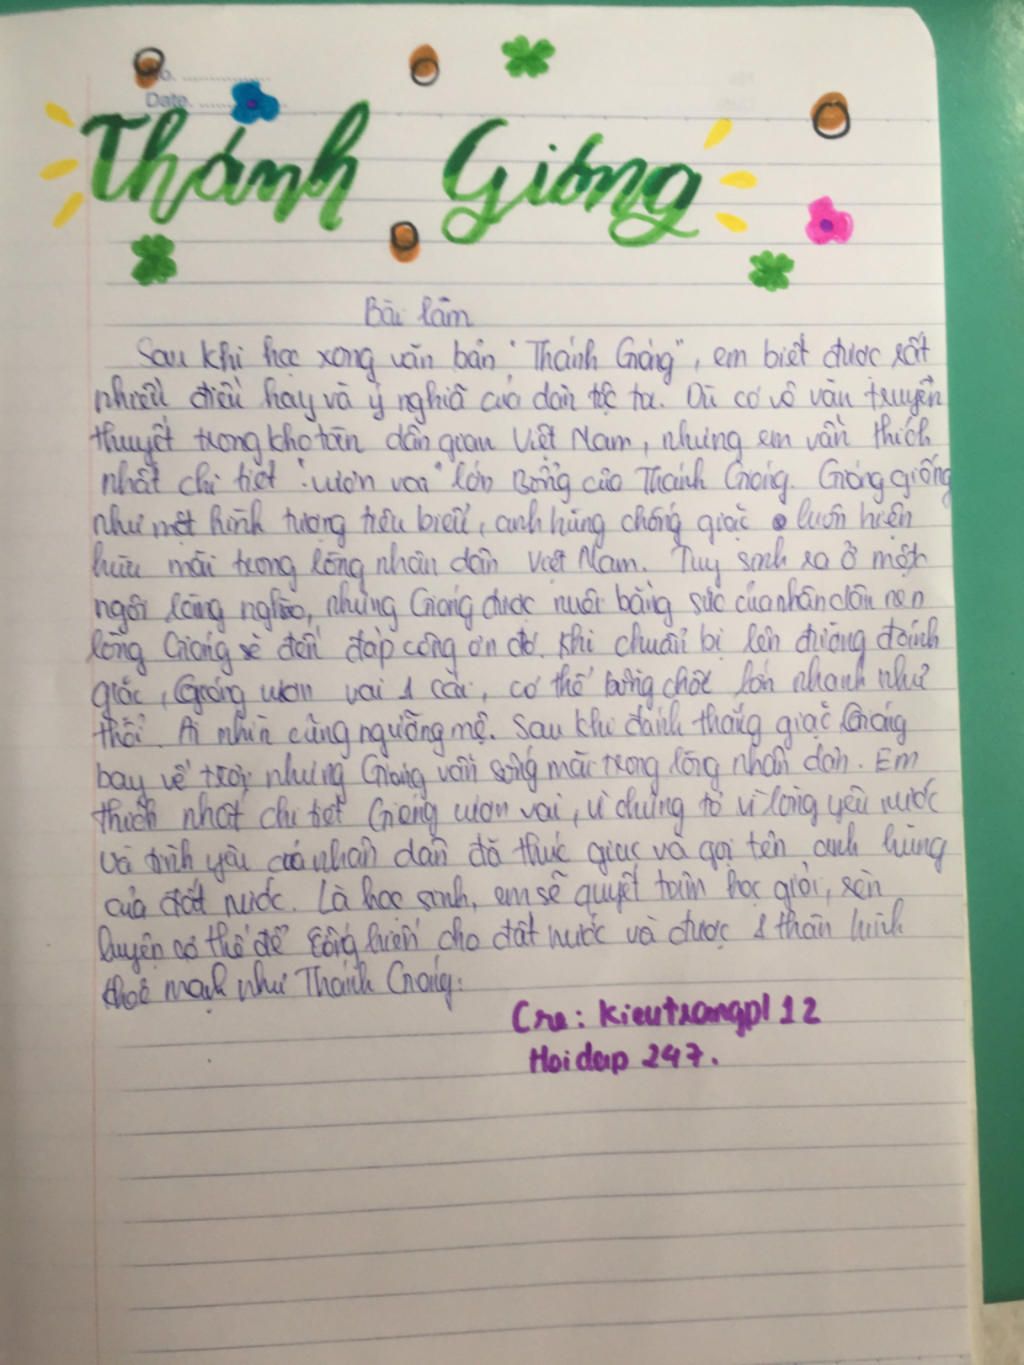 No. ..................
Date. ..................
Thánh Gióng
Bài làm
Sau khi học xong văn bản "Thánh Gióng", em biết được rất
nhiều điều hay và ý nghĩa của dân tộc ta. Dù có vô vàn truyền
thuyết trong kho tàn dân gian Việt Nam, nhưng em vẫn thích
nhất chi tiết "ươn vai" lớn Bổng của Thánh Gióng. Gióng giống
như một hình tượng tiêu biểu, anh hùng chống giặc luôn hiện
hữu mãi trong lòng nhân dân Việt Nam. Tuy sinh ra ở một
ngôi làng nghèo, nhưng Gióng được nuôi bằng sức của nhân dân nên
lòng Gióng sẽ đền đáp công ơn đó. Khi chuẩn bị lên đường đánh
giặc, Gióng ươn vai 1 cái, cơ thể bỗng chốc lớn nhanh như
thổi. Ai nhìn cũng ngưỡng mộ. Sau khi đánh thắng giặc Gióng
bay về trời, nhưng Gióng vẫn sống mãi trong lòng nhân dân. Em
thích nhất chi tiết Gióng ươn vai, vì chứng tỏ vì lòng yêu nước
và tình yêu của nhân dân đã thức giục và gọi tên anh hùng
của đất nước. Là học sinh, em sẽ quyết tâm học giỏi, rèn
luyện cơ thể để cống hiến cho đất nước và được 1 thân hình
khoẻ mạnh như Thánh Gióng.
Cre: kieutrangpl 12
Hoidap 247.